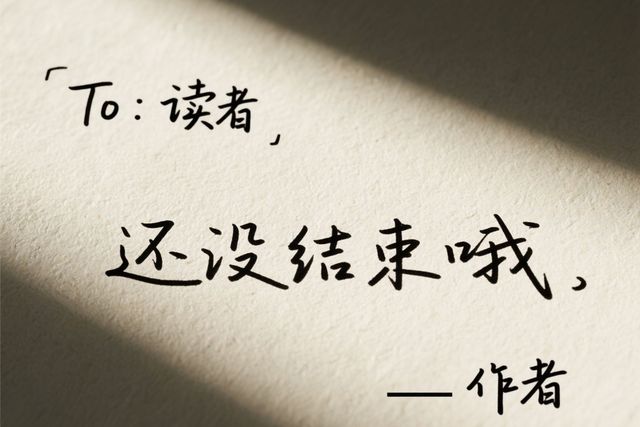 「To：读者」
还没结束哦，
——作者